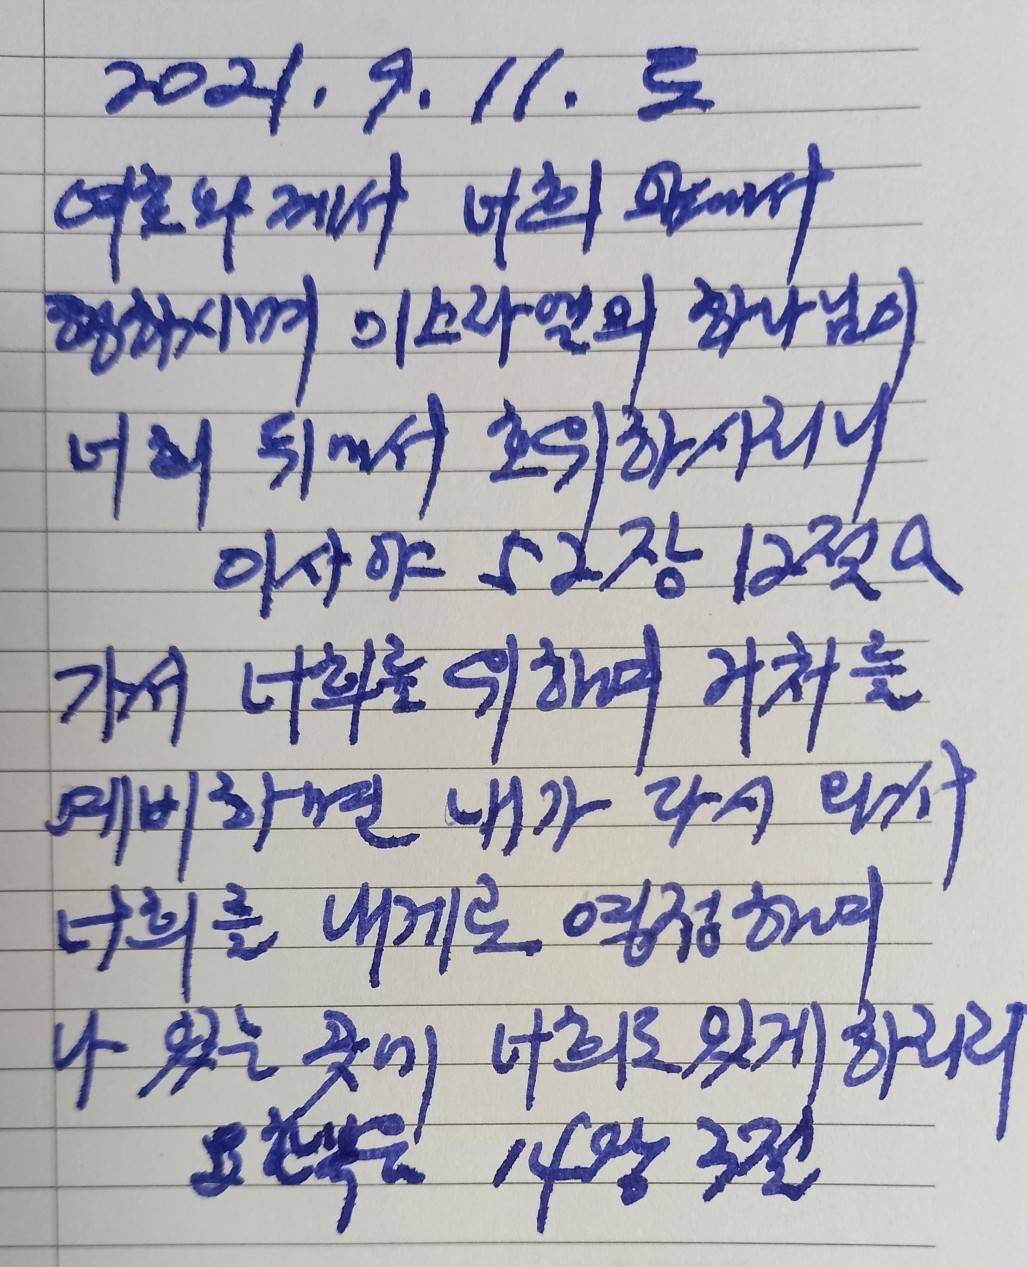 2021. 9. 11. 토
여호와께서 너희 앞에서
행하시며 이스라엘의 하나님이
너희 뒤에서 호위하시리니
이사야 52장 12절a
가서 너희를 위하여 거처를
예비하면 내가 다시 와서
너희를 내게로 영접하여
나 있는 곳에 너희도 있게 하리라
요한복음 14장 3절